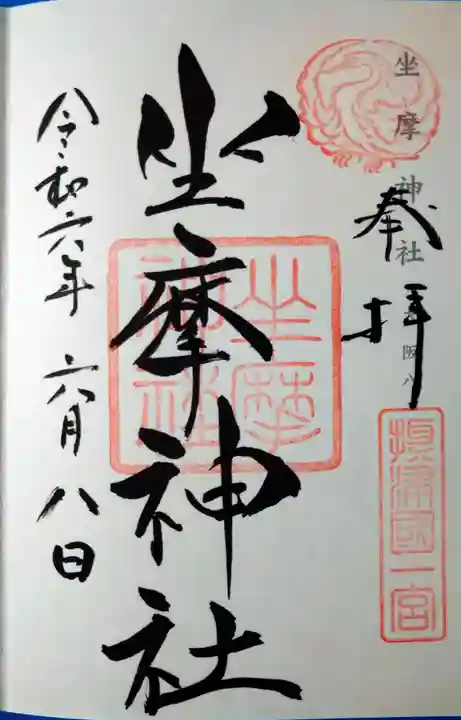 坐摩神社
奉拝
攝津國一宮
坐摩神社
坐摩神社
令和六年 六月八日